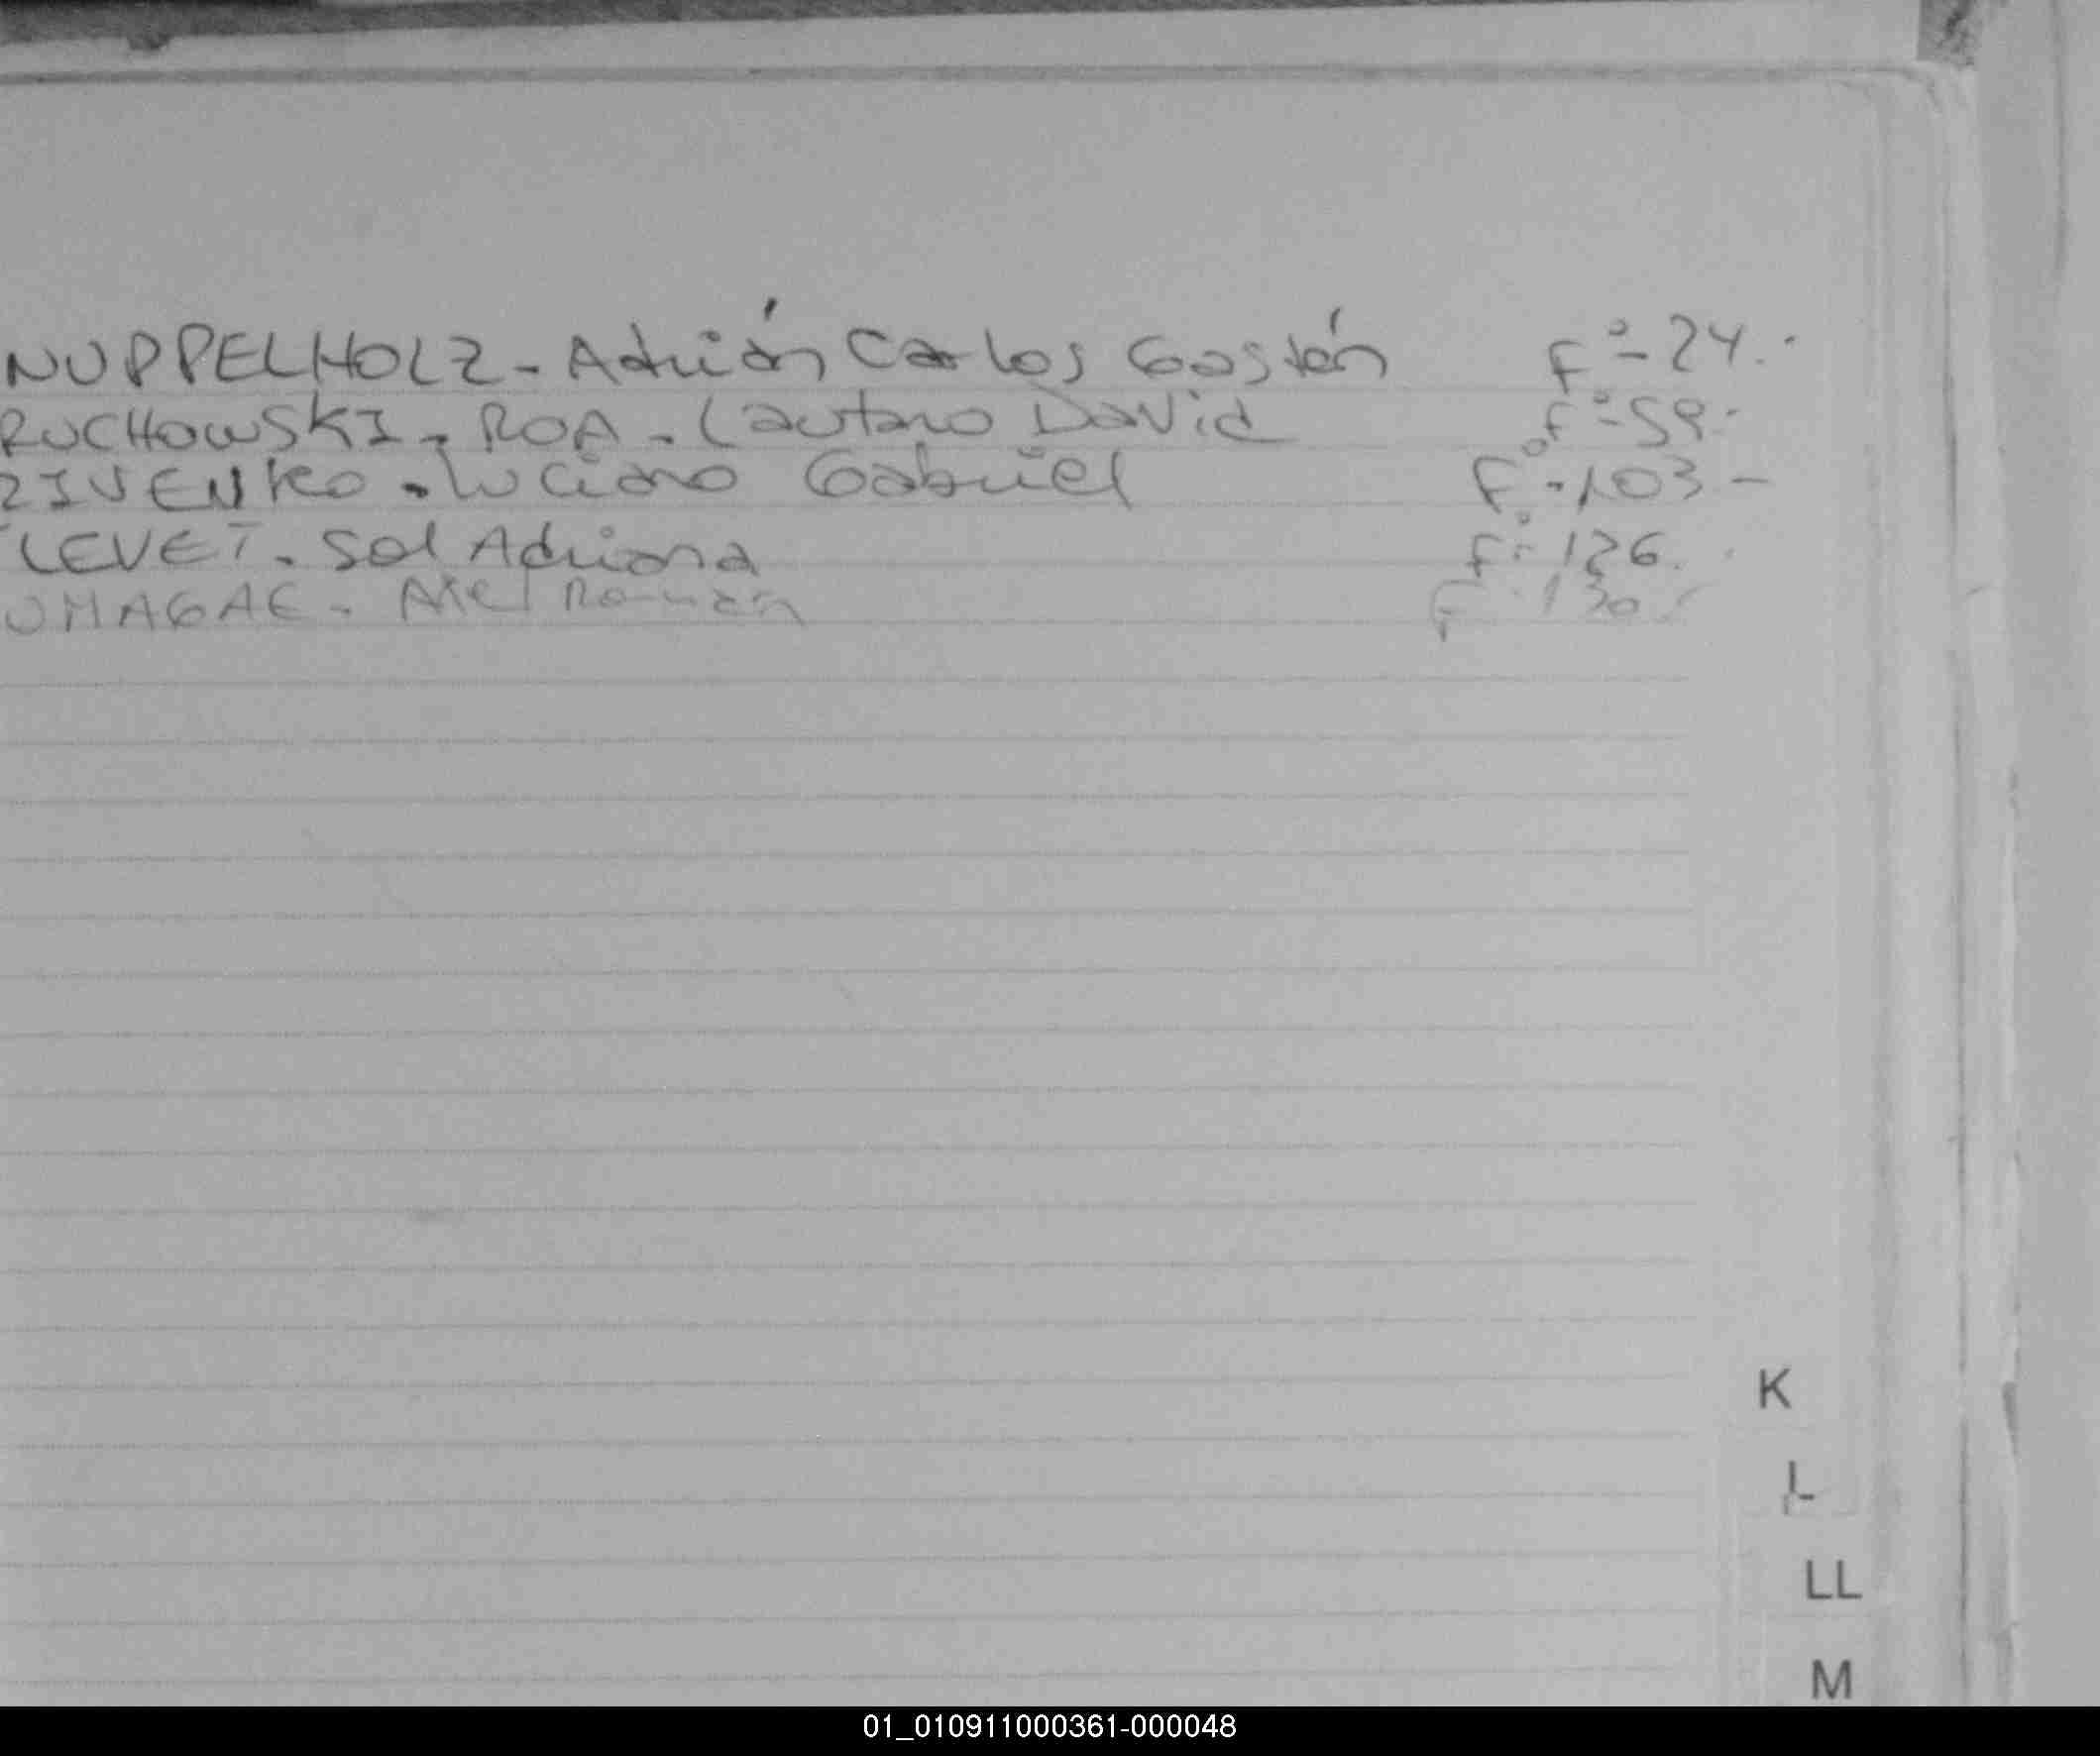 NUPPELHOLZ - Adrián Carlos Gastón F° - 24.-
RUCHOWSKI - ROA - Lautaro David f° - 59.
ZIVENKO - Luciano Gabriel F° - 103 -
LEVET - Sol Adriana f° - 126.
UMAGAC - Axel Román F° - 130.
K
L
LL
M
01_010911000361-000048